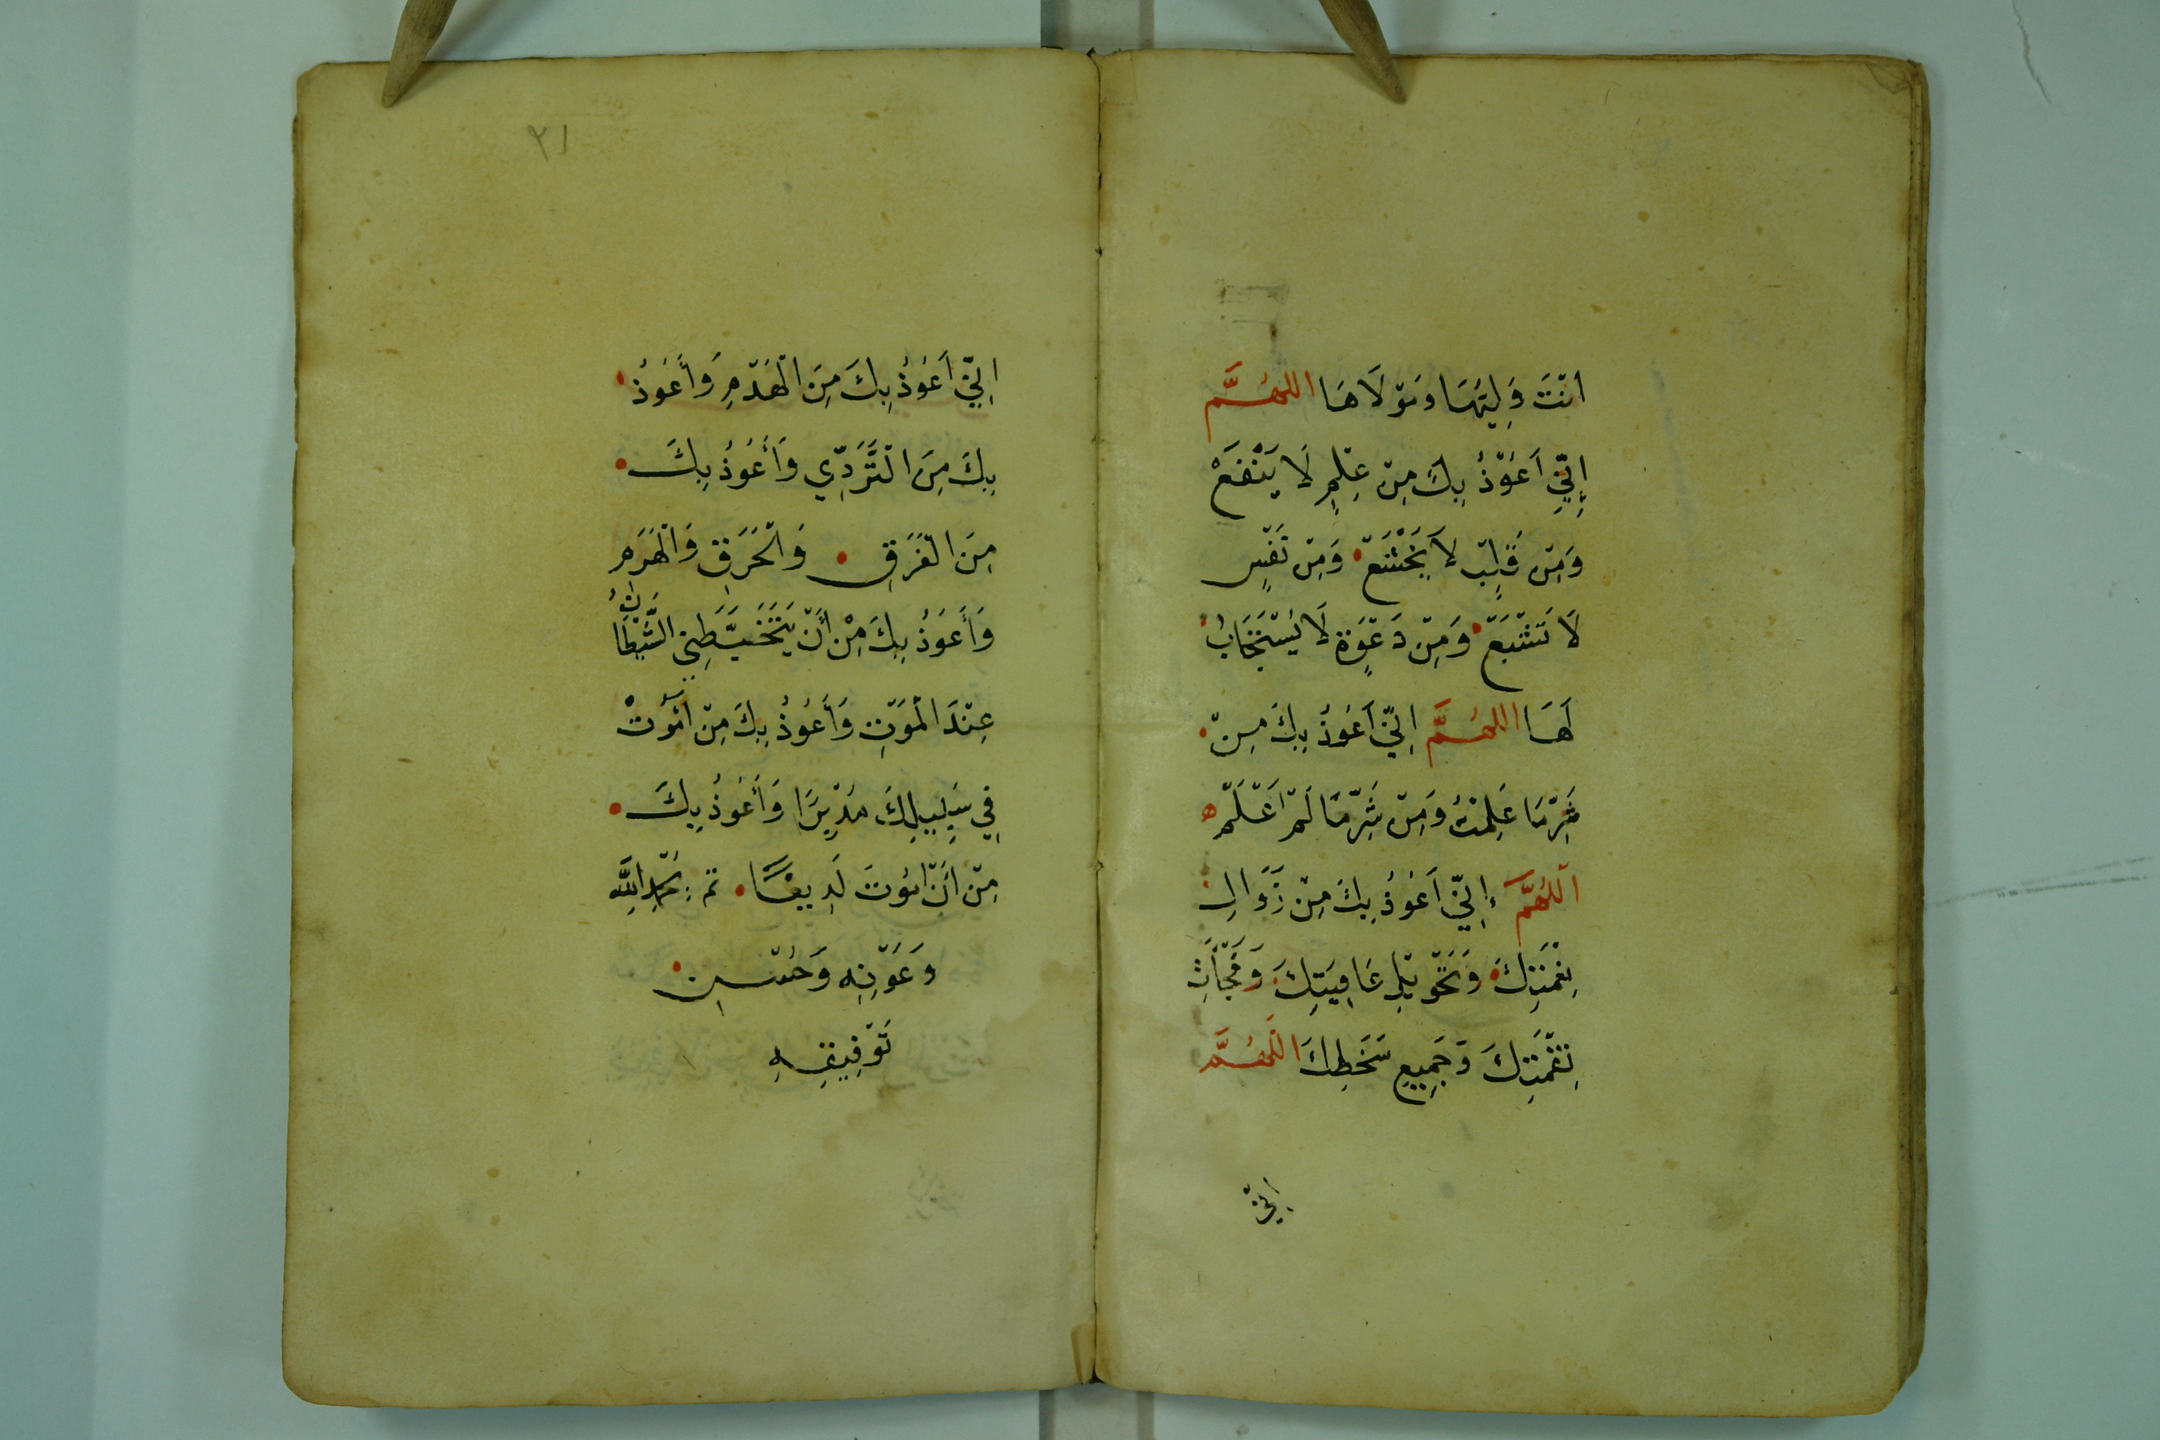 اَنْتَ وَلِيُّهَا وَمَوْلَاهَا اللهُمَّ
إِنِّي اَعُوْذُ بِكَ مِنْ عِلْمٍ لَا يَنْفَعْ
وَمِنْ قَلْبٍ لَا يَخْشَعْ وَمِنْ نَفْسٍ
لَا تَشْبَعْ وَمِنْ دَعْوَةٍ لَا يُسْتَجَابُ
لَهَا اللهُمَّ اِنِّي اَعُوْذُ بِكَ مِنْ
شَرِّمَا عَلِمْتُ وَمِنْ شَرِّمَا لَمْ اَعْلَمْ
اَللهُمَّ إِنِّي اَعُوْذُ بِكَ مِنْ زَوَالِ
نِعْمَتِكَ وَتَحْوِيْلِ عَافِيَتِكَ وَفَجْأَتِ
نِقْمَتِكَ وَجَمِيعِ سَخَطِكَ اللهُمَّ
اِنِّي
٢١
اِنِّي اَعُوْذُ بِكَ مِنَ الْهَدْمِ وَأَعُوْذُ
بِكَ مِنَ الْتَّرَدِّي وَأَعُوْذُ بِكَ
مِنَ الْغَرَقِ وَالْحَرَقِ وَالْهَرَمِ
وَأَعُوْذُ بِكَ مِنْ أَنْ يَتَخَبَّطَنِي الشَّيْطَانُ
عِنْدَ الْمَوْتِ وَأَعُوْذُ بِكَ مِنْ اَمُوتْ
فِي سَبِيلِكَ مُدْبِرًا وَأَعُوْذُ بِكَ
مِنْ اَنْ اَمُوتَ لَدِيغًا تم بحمد الله
وَعَوْنِهِ وَحُسْنِ
تَوْفِيقِهِ